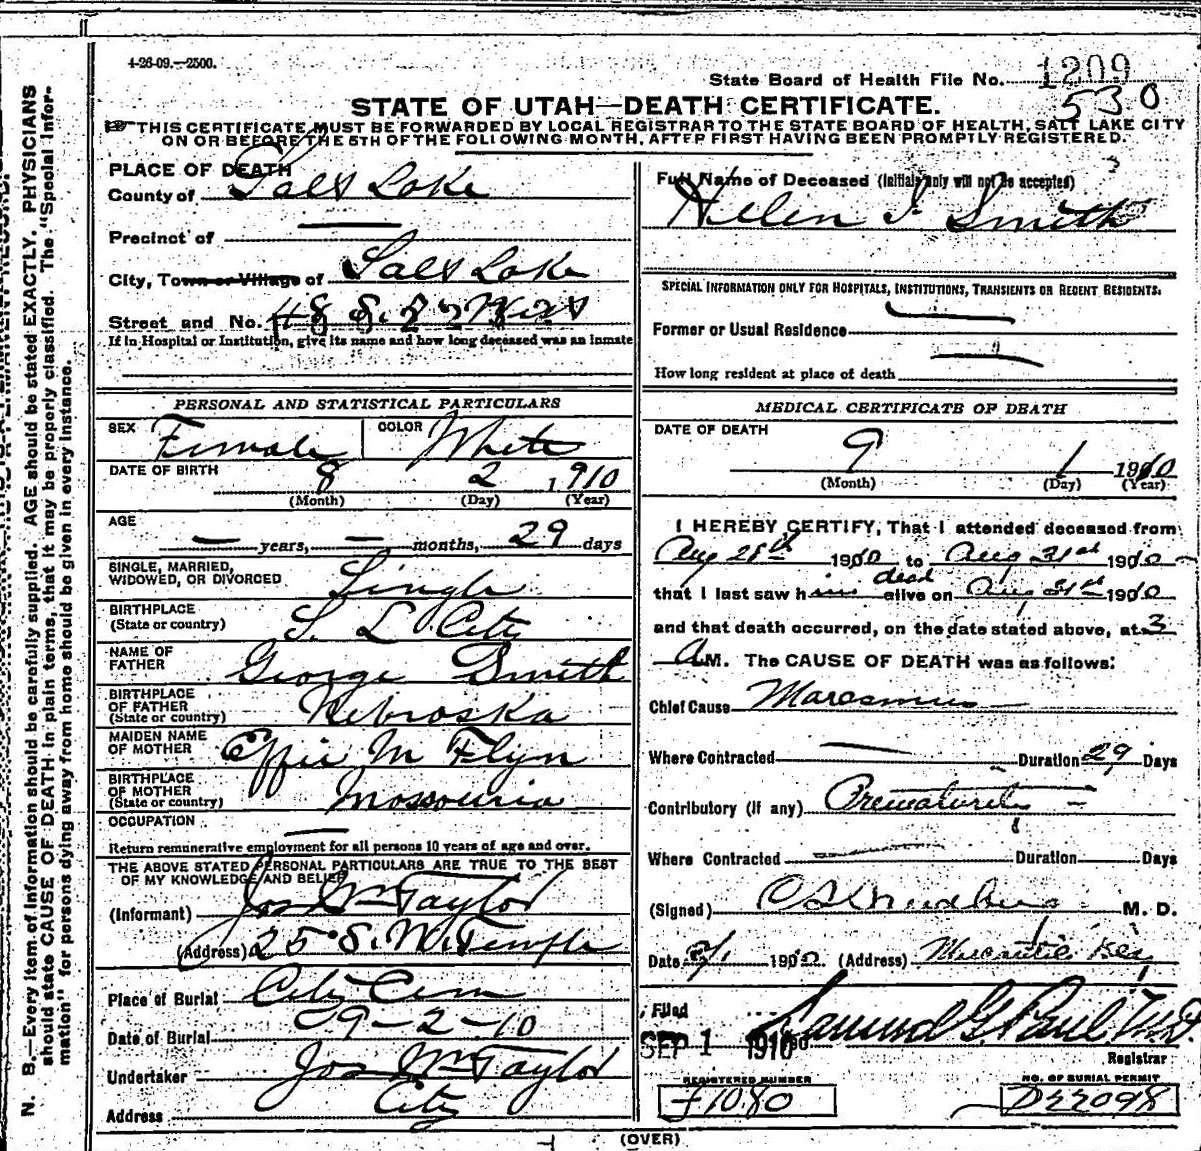 4-26-09.—2500.
State Board of Health File No. 1209
530
STATE OF UTAH—DEATH CERTIFICATE.
THIS CERTIFICATE MUST BE FORWARDED BY LOCAL REGISTRAR TO THE STATE BOARD OF HEALTH, SALT LAKE CITY
ON OR BEFORE THE 5TH OF THE FOLLOWING MONTH, AFTER FIRST HAVING BEEN PROMPTLY REGISTERED.
N. B.—Every item of information should be carefully supplied. AGE should be stated EXACTLY. PHYSICIANS
should state CAUSE OF DEATH in plain terms, that it may be properly classified. The "Special Infor-
mation" for persons dying away from home should be given in every instance.
PLACE OF DEATH
County of Salt Lake
Precinct of —
City, Town or Village of Salt Lake
Street and No. 48 S. 2 West
If in Hospital or Institution, give its name and how long deceased was an inmate
PERSONAL AND STATISTICAL PARTICULARS
SEX Female COLOR White
DATE OF BIRTH
8 2 1910
(Month) (Day) (Year)
AGE
— years, — months, 29 days
SINGLE, MARRIED,
WIDOWED, OR DIVORCED Single
BIRTHPLACE
(State or country) S. L City
NAME OF
FATHER George Smith
BIRTHPLACE
OF FATHER
(State or country) Nebraska
MAIDEN NAME
OF MOTHER Effie M Flyn
BIRTHPLACE
OF MOTHER
(State or country) Mossouria
OCCUPATION —
Return remunerative employment for all persons 10 years of age and over.
THE ABOVE STATED PERSONAL PARTICULARS ARE TRUE TO THE BEST
OF MY KNOWLEDGE AND BELIEF
(Informant) Jos Wm Taylor
(Address) 25 S. W. Temple
Place of Burial City Cem
Date of Burial 9-2-10
Undertaker Jos Wm Taylor
Address City
Full Name of Deceased (Initials only will not be accepted)
Hellen I. Smith
SPECIAL INFORMATION ONLY FOR HOSPITALS, INSTITUTIONS, TRANSIENTS OR RECENT RESIDENTS.
Former or Usual Residence —
How long resident at place of death —
MEDICAL CERTIFICATE OF DEATH
DATE OF DEATH
9 1 1910
(Month) (Day) (Year)
I HEREBY CERTIFY, That I attended deceased from
Aug 28th 1910 to Aug 31st 1910
that I last saw him dead alive on Aug 31st 1910
and that death occurred, on the date stated above, at 3
A M. The CAUSE OF DEATH was as follows:
Chief Cause Marasmus
Where Contracted — Duration 29 Days
Contributory (if any) Prematurity
Where Contracted — Duration Days
(Signed) M. D.
Date 9/1 1910 (Address) Mercantile Blg
Filed
SEP 1 1910 Samuel G. Paul M.D.
Registrar
REGISTERED NUMBER
F1080
NO. OF BURIAL PERMIT
D22098
(OVER)